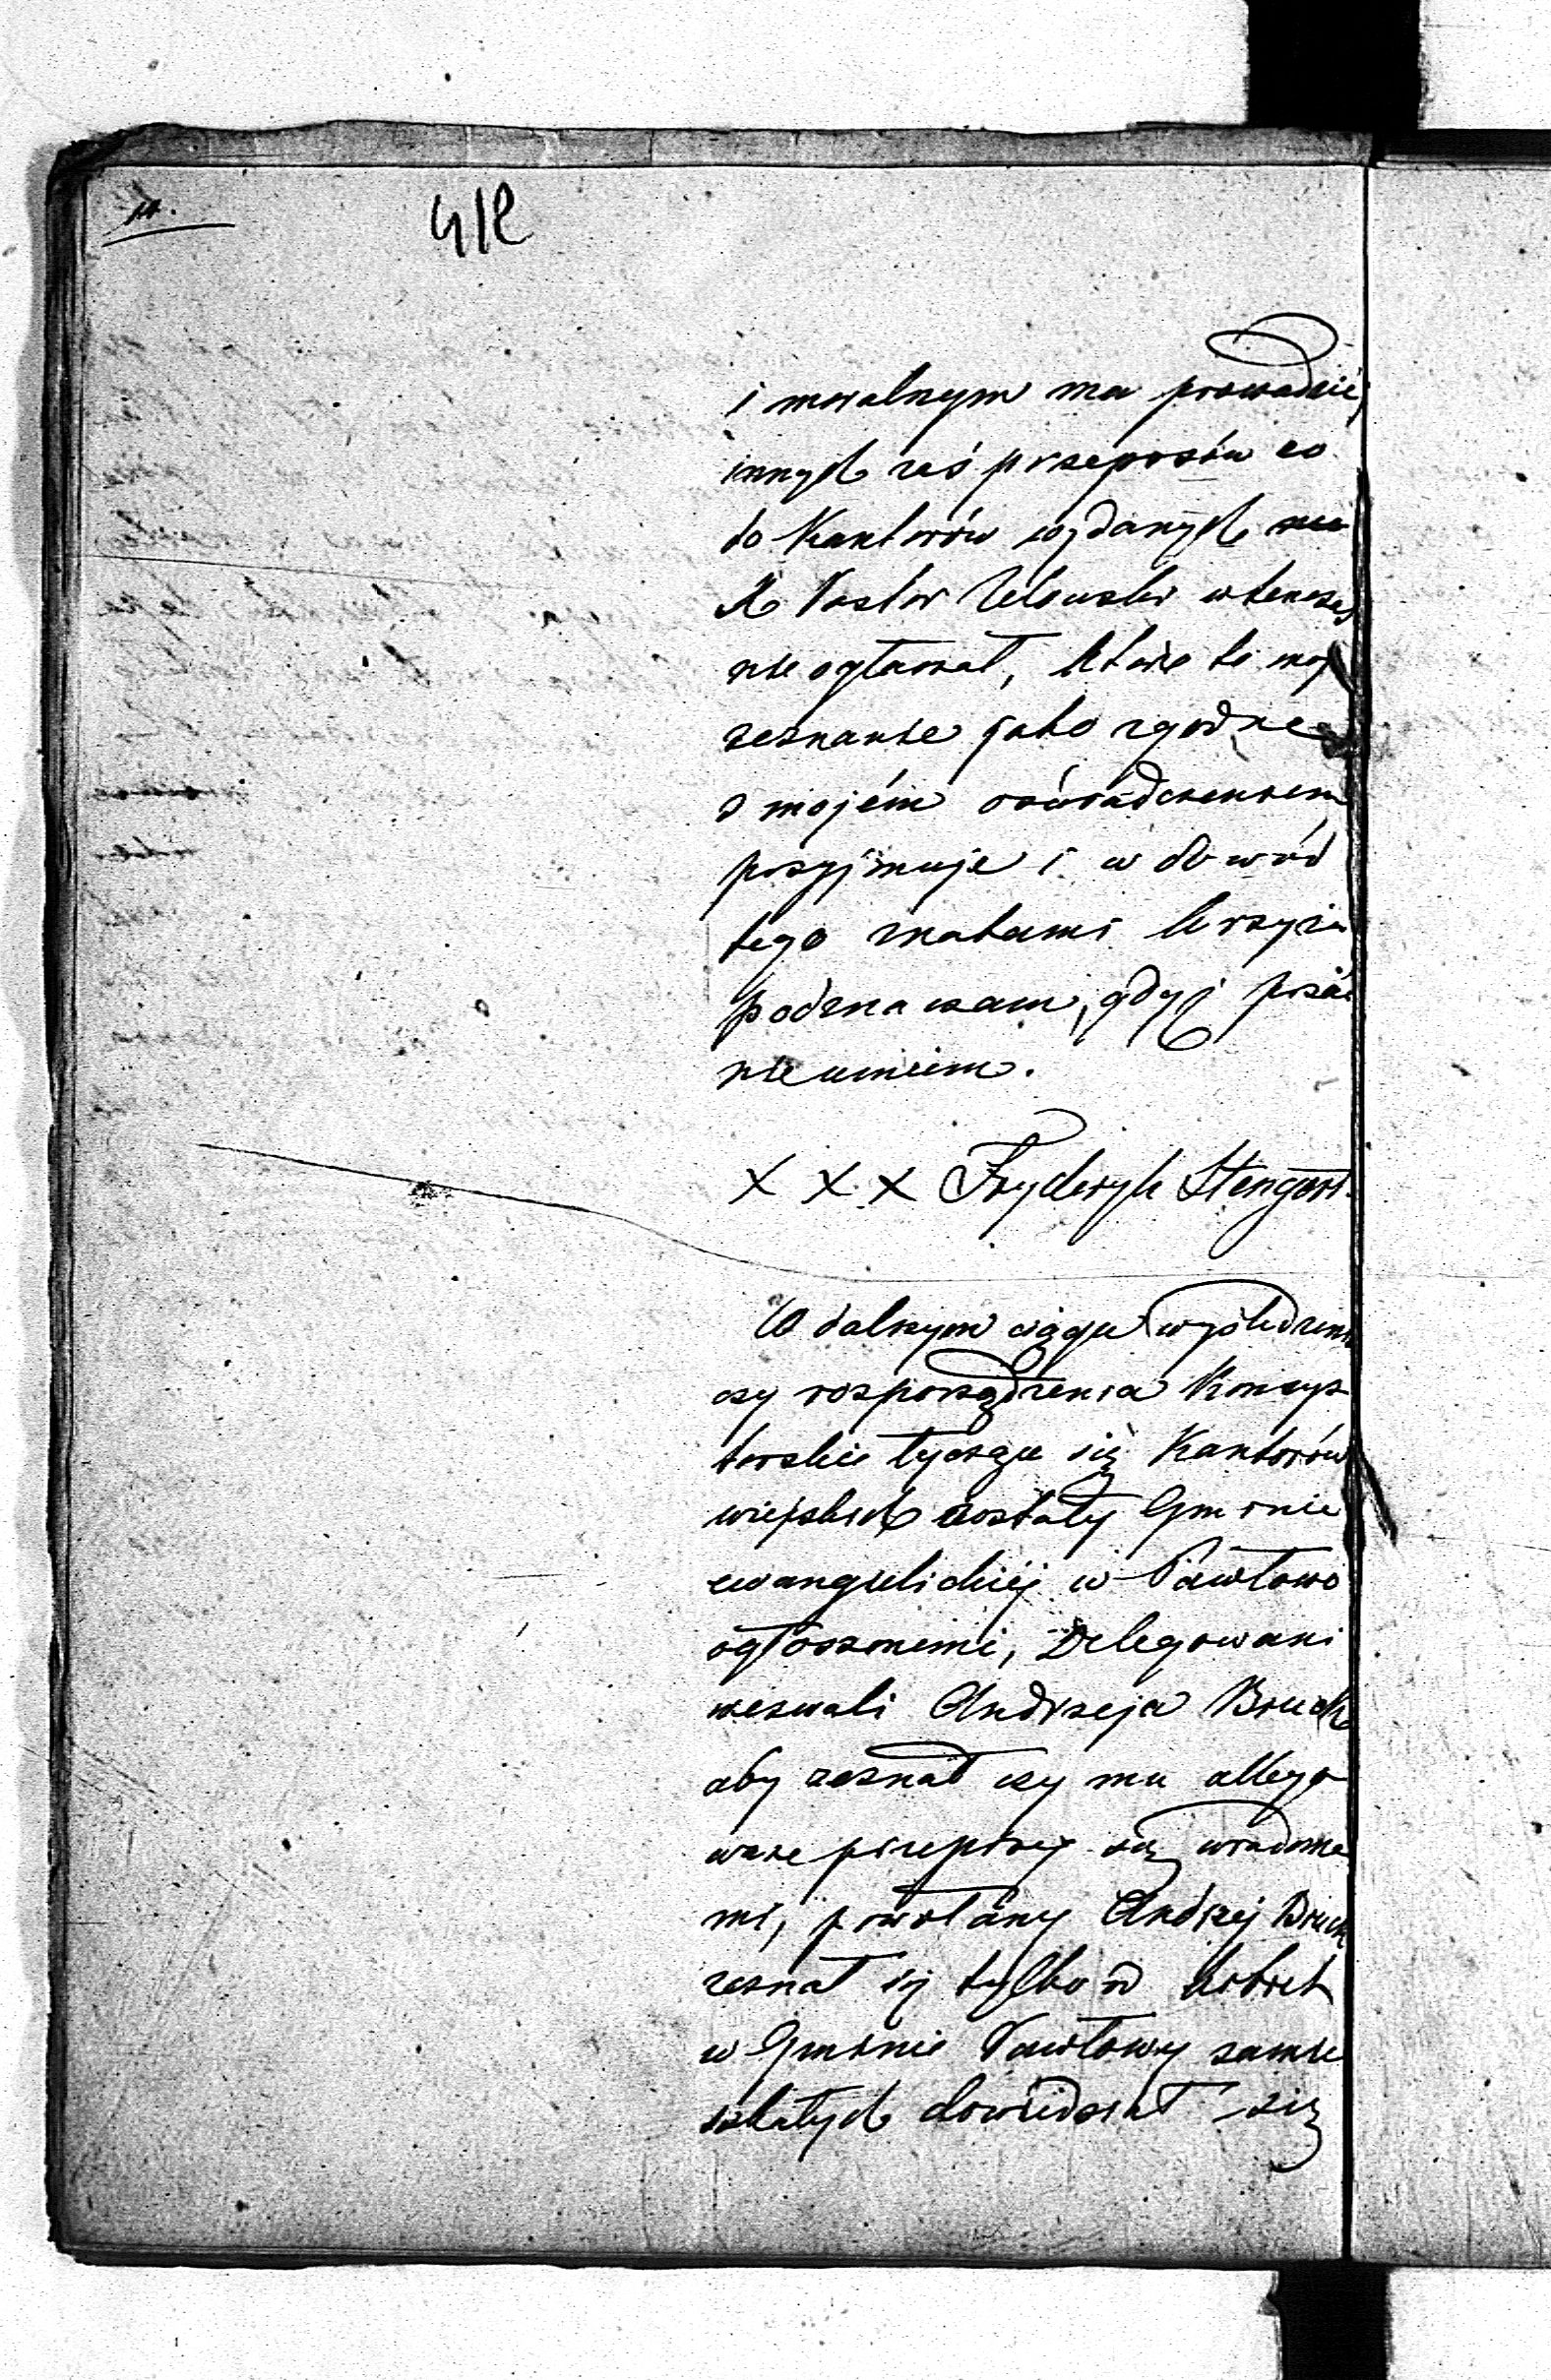 14.
412
i moralnym ma prowadzić,
innych zaś przepisów co
do Kantorów wydanych
X Pastor wtenczas
nie ogłaszał, które to moje
zeznanie jako zgodne
z mojém oświadczeniem
przyjmuje i w dowód
tego znakami krzyża
podznaczam, gdyż pisać
nie umiem.
X X X Fryderyk Stengert.
W dalszym ciągu wyśledzenia
czy rosporządzenia Konsys
torskie tyczące się Kantorów
wiejskich zostały Gminie
ewangelickiéj w Pawłowo
ogłoszonemi, Delegowani
wezwali Andrzeja Bruck
aby zeznał czy mu allego
wane przepisy są wiadome
mi, powołany Andrzej Bruck
zeznał iż tylko od kobiet
w Gminie Pawłowy zamie
szkałych dowiedział się